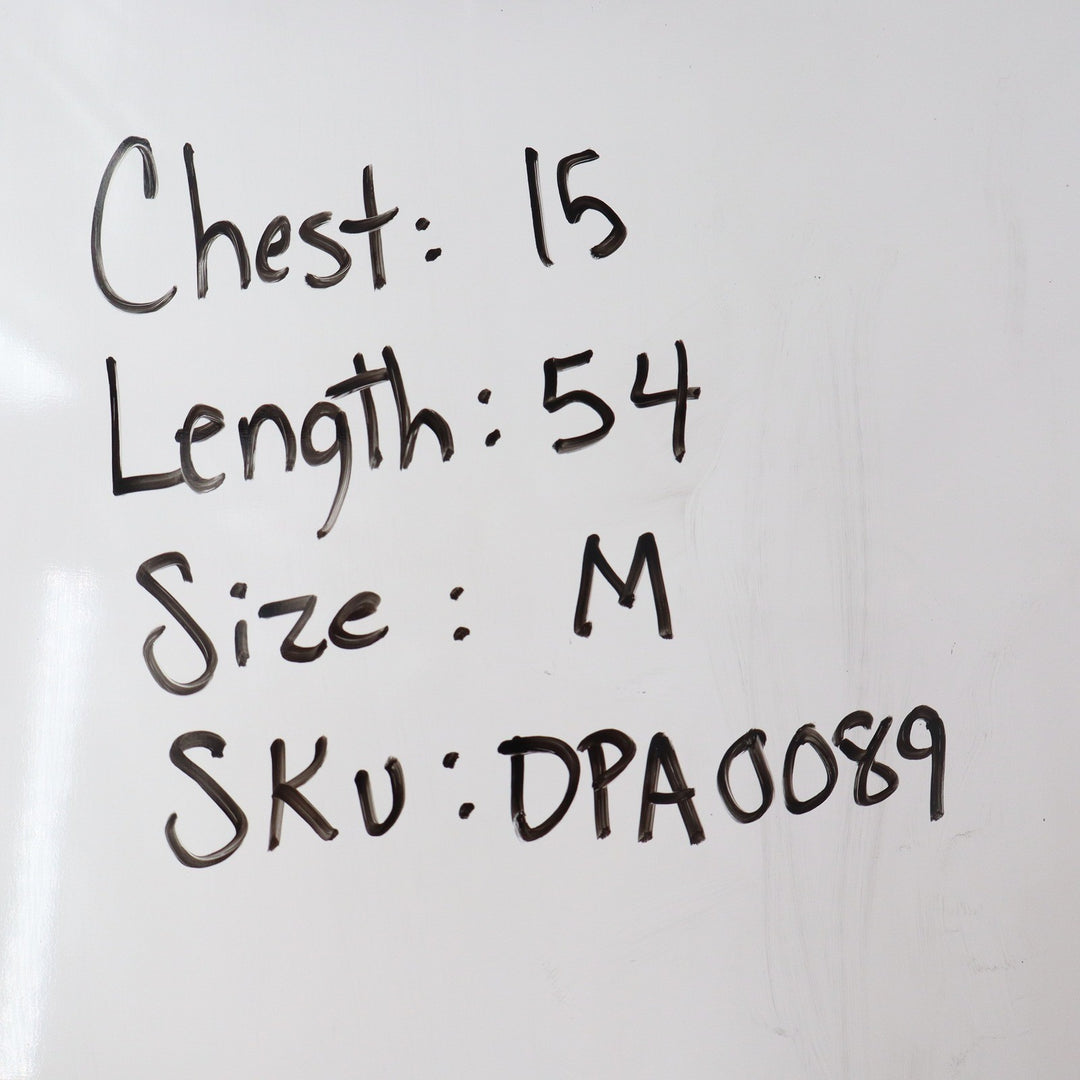 Chest: 15
Length: 54
Size: M
SKU: DPA0089